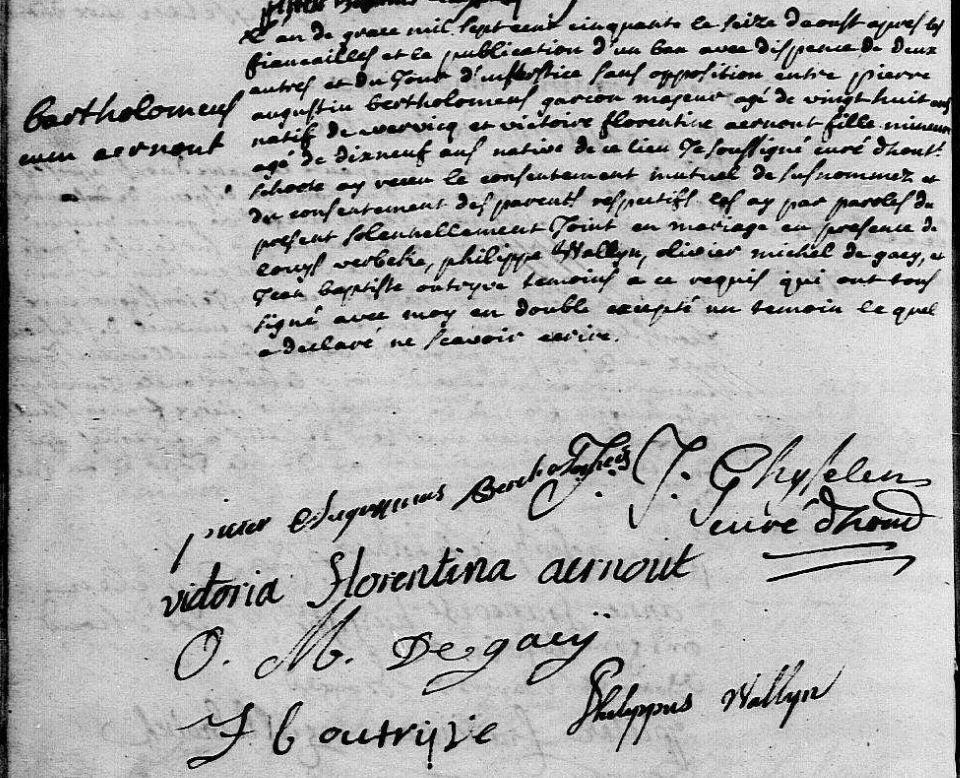 L'an de grace mil sept cent cinquante le seize d'aoust apres les
fiancailles et la publication d'un ban avec dispence de deux
autres et du Jour d'interstice sans opposition entre pierre
bartholomeus
augustin bertholomeus garcon majeur agé de vingt huit ans
natif de wervicq et victoire florentine aernout fille mineure
cum aernout
agé de dixneuf ans native de ce lieu Je soussigné curé d'hont
schoote ay receu le consentement mutuel de susnommez et
du consentement des parents respectifs les ay par paroles du
present solennellement Joint en mariage en presence de
louys verbeke, philippe Wallyn, olivier michel de gaey, et
Jean baptiste outryve temoins a ce requis qui ont tous
signé avec moy en double excepté un temoin le quel
a declaré ne scavoir ecrire.
J. J. Ghyselen
pieter
curé d'hond
victoria florentina aernout
O. M. De gaeÿ
Philippus Wallyn
J b outrijve